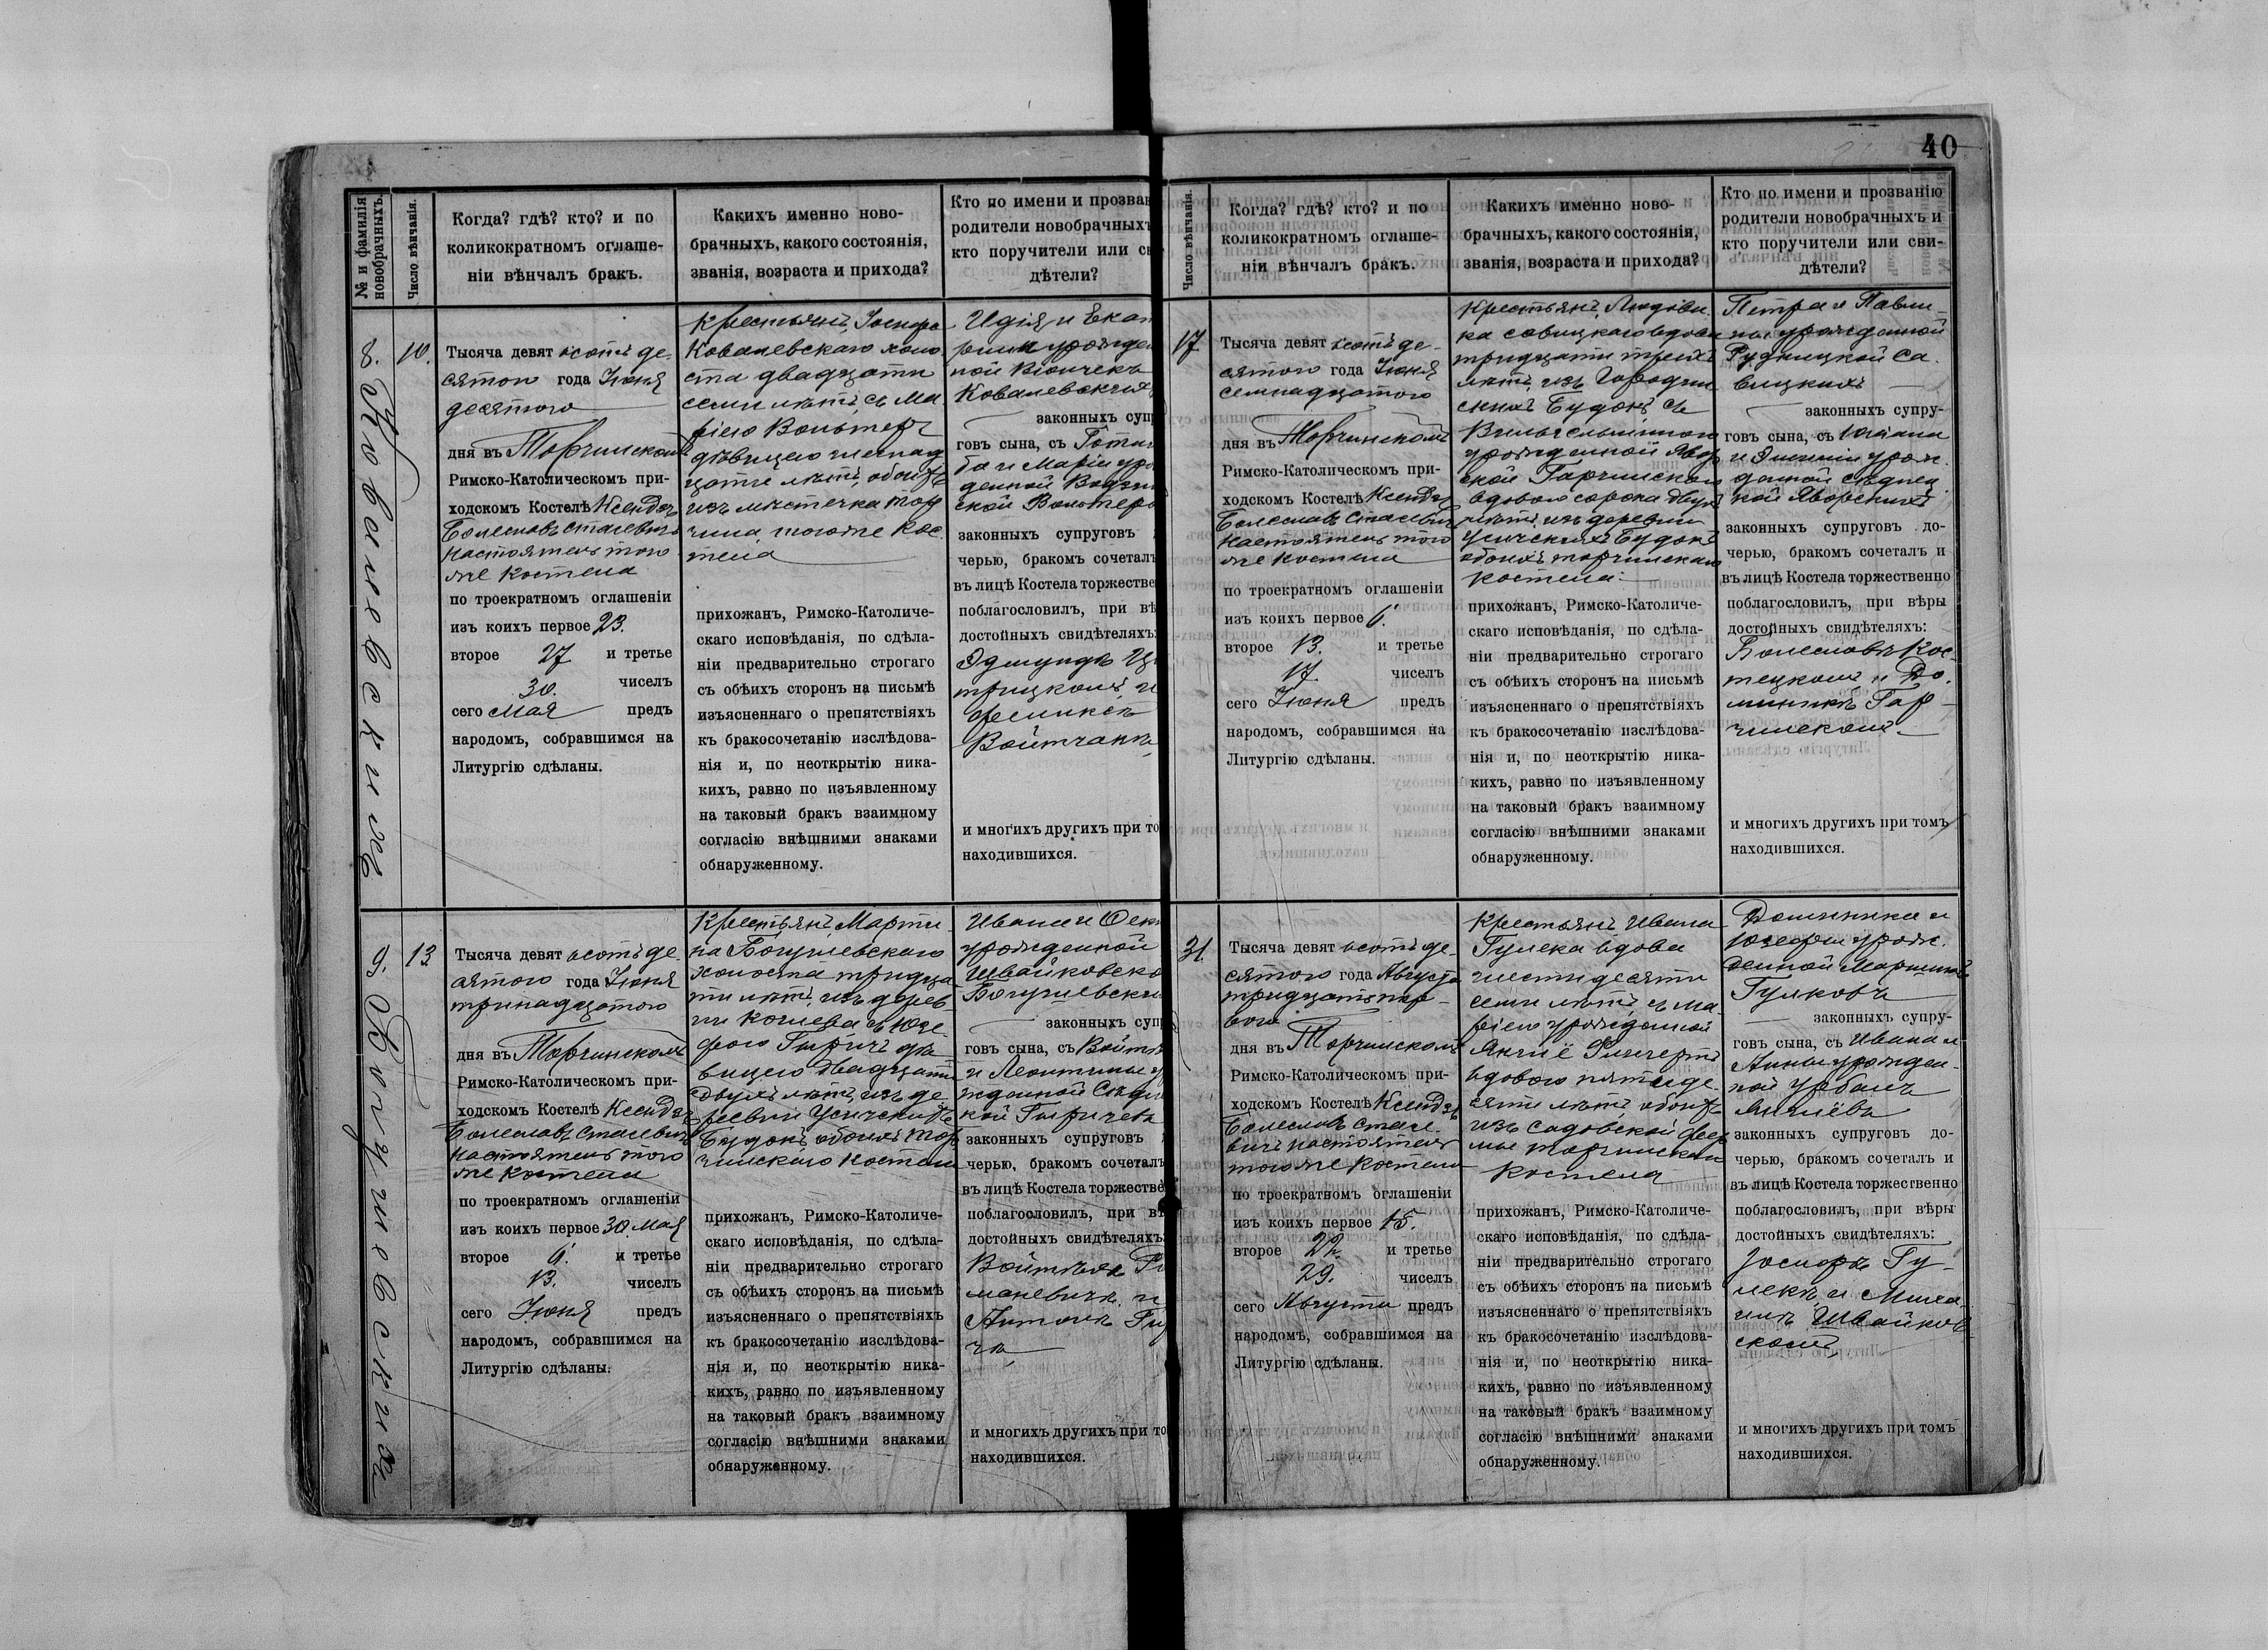 40
№ и фамилія
новобрачныхъ.
Число вѣнчанія.
Когда? гдѣ? кто? и по
коликократномъ оглаше-
ніи вѣнчалъ бракъ.
Какихъ именно ново-
брачныхъ, какого состоянія,
званія, возраста и прихода?
Кто по имени и прозван
родители новобрачныхъ
кто поручители или св
дѣтели?
8.
Ковалевскихъ
10.
Тысяча девят исотъ де-
сятого года Іюня
десятого
дня въ Торчинскомъ
Римско-Католическомъ при-
ходскомъ Костелѣ Ксендзъ
Болеславъ Стасевичъ
настоятель того
же костела
по троекратномъ оглашеніи
изъ коихъ первое 23.
второе 27 и третье
30. чиселъ
сего Мая предъ
народомъ, собравшимся на
Литургію сдѣланы.
Крестьянъ, Іосифа
Ковалевскаго холо
ста двадцати
семи лѣтъ, съ Ма
ріею Вольтеръ
дѣвицею шестнад
цати лѣтъ, обоихъ
изъ мѣстечка Тор
чина, того же кос
тела
прихожанъ, Римско-Католиче-
скаго исповѣданія, по сдѣла-
ніи предварительно строгаго
съ обѣихъ сторонъ на письмѣ
изъясненнаго о препятствіяхъ
къ бракосочетанію изслѣдова-
нія и, по неоткрытію ника-
кихъ, равно по изъявленному
на таковый бракъ взаимному
согласію внѣшними знаками
обнаруженному.
и Екат
рины урожде
ной
Ковалевских
законныхъ супр
говъ сына, съ
и Маріи уро
денной
ской Вольтеро
законныхъ супруговъ
черью, бракомъ сочеталъ
въ лицѣ Костела торжестве
поблагословилъ, при вѣ
достойныхъ свидѣтеляхъ
Эдмундъ
трицкомъ и
Феликсъ
Войтчакъ
и многихъ другихъ при то
находившихся.
9.
Богушевских
13
Тысяча девят исотъ де-
сятого года Іюня
тринадцатого
дня въ Торчинскомъ
Римско-Католическомъ при-
ходскомъ Костелѣ Ксендзъ
Болеславъ Стасевичъ
настоятель того
же костела
по троекратномъ оглашеніи
изъ коихъ первое 30. Мая
второе 6. и третье
13. чиселъ
сего Іюня предъ
народомъ, собравшимся на
Литургію сдѣланы.
Крестьянъ Марти
на Богушевскаго
холоста тридца
ти лѣтъ, изъ дерев
ни Кошева съ Юзе
фою Гыричъ дѣ
вицею двадцати
двухъ лѣтъ, изъ де
ревни Усическихъ
Будокъ обоихъ Тор
чинскаго костела
прихожанъ, Римско-Католиче-
скаго исповѣданія, по сдѣла-
ніи предварительно строгаго
съ обѣихъ сторонъ на письмѣ
изъясненнаго о препятствіяхъ
къ бракосочетанію изслѣдова-
нія и, по неоткрытію ника-
кихъ, равно по изъявленному
на таковый бракъ взаимному
согласію внѣшними знаками
обнаруженному.
Ивана и
урожденной
Швайковско
Богушевски
законныхъ супр
говъ сына, съ Войтѣ
и Леонтины у
жданной
кой Гыричевъ
законныхъ супруговъ
черью, бракомъ сочеталъ
въ лицѣ Костела торжестве
поблагословилъ, при вѣ
достойныхъ свидѣтеляхъ
Войтѣхъ
маневичъ и
Антонъ
чъ
и многихъ другихъ при то
находившихся.
Число вѣнчанія.
Когда? гдѣ? кто? и по
коликократномъ оглаше-
ніи вѣнчалъ бракъ.
Какихъ именно ново-
брачныхъ, какого состоянія,
званія, возраста и прихода?
Кто по имени и прозванію
родители новобрачныхъ и
кто поручители или сви-
дѣтели?
17
Тысяча девят исотъ де-
сятого года Іюня
семнадцатого
дня въ Торчинскомъ
Римско-Католическомъ при-
ходскомъ Костелѣ Ксендзъ
Болеславъ Стасевичъ
настоятель того
же костела
по троекратномъ оглашеніи
изъ коихъ первое 6.
второе 13. и третье
17. чиселъ
сего Іюня предъ
народомъ, собравшимся на
Литургію сдѣланы.
Крестьянъ, Людови
ка Савицкаго вдова
тридцати трехъ
лѣтъ, изъ Городин
скихъ Будокъ съ
Вильгельминою
урожденной Явор
ской Гарчинскою
вдовою сорока двухъ
лѣтъ, изъ деревни
Усическихъ Будокъ
обоихъ торчинскаго
костела
прихожанъ, Римско-Католиче-
скаго исповѣданія, по сдѣла-
ніи предварительно строгаго
съ обѣихъ сторонъ на письмѣ
изъясненнаго о препятствіяхъ
къ бракосочетанію изслѣдова-
нія и, по неоткрытію ника-
кихъ, равно по изъявленному
на таковый бракъ взаимному
согласію внѣшними знаками
обнаруженному.
Петра и Павли
ны урожденной
Рудницкой Са
вицкихъ
законныхъ супру-
говъ сына, съ
и урож
денной
кой Яворскихъ
законныхъ супруговъ до-
черью, бракомъ сочеталъ и
въ лицѣ Костела торжественно
поблагословилъ, при вѣры
достойныхъ свидѣтеляхъ:
Болеславъ Кос-
тецкомъ и До
миникъ Гар
чинскомъ
и многихъ другихъ при томъ
находившихся.
31.
Тысяча девят исотъ де-
сятого года Августа
тридцать пер-
вого
дня въ Торчинскомъ
Римско-Католическомъ при-
ходскомъ Костелѣ Ксендзъ
Болеславъ Стасе
вичъ настоятель
того же костела
по троекратномъ оглашеніи
изъ коихъ первое 15.
второе 22. и третье
29. чиселъ
сего Августа предъ
народомъ, собравшимся на
Литургію сдѣланы.
Крестьянъ Ивана
Гулека вдова
шестидесяти
семи лѣтъ, съ Ма
ріею урожденной
вдовою пятиде
сяти лѣтъ обоихъ
изъ Садовской фер
мы торчинскаго
костела
прихожанъ, Римско-Католиче-
скаго исповѣданія, по сдѣла-
ніи предварительно строгаго
съ обѣихъ сторонъ на письмѣ
изъясненнаго о препятствіяхъ
къ бракосочетанію изслѣдова-
нія и, по неоткрытію ника-
кихъ, равно по изъявленному
на таковый бракъ взаимному
согласію внѣшними знаками
обнаруженному.
Доминика и
Юзефы урож
денной
Гулковъ
законныхъ супру-
говъ сына, съ Ивана и
Анны урожден-
ной Урбанъ
законныхъ супруговъ до-
черью, бракомъ сочеталъ и
въ лицѣ Костела торжественно
поблагословилъ, при вѣры
достойныхъ свидѣтеляхъ:
Іосифъ Гу-
лекъ и Миха
илъ Швайков
скомъ
и многихъ другихъ при томъ
находившихся.